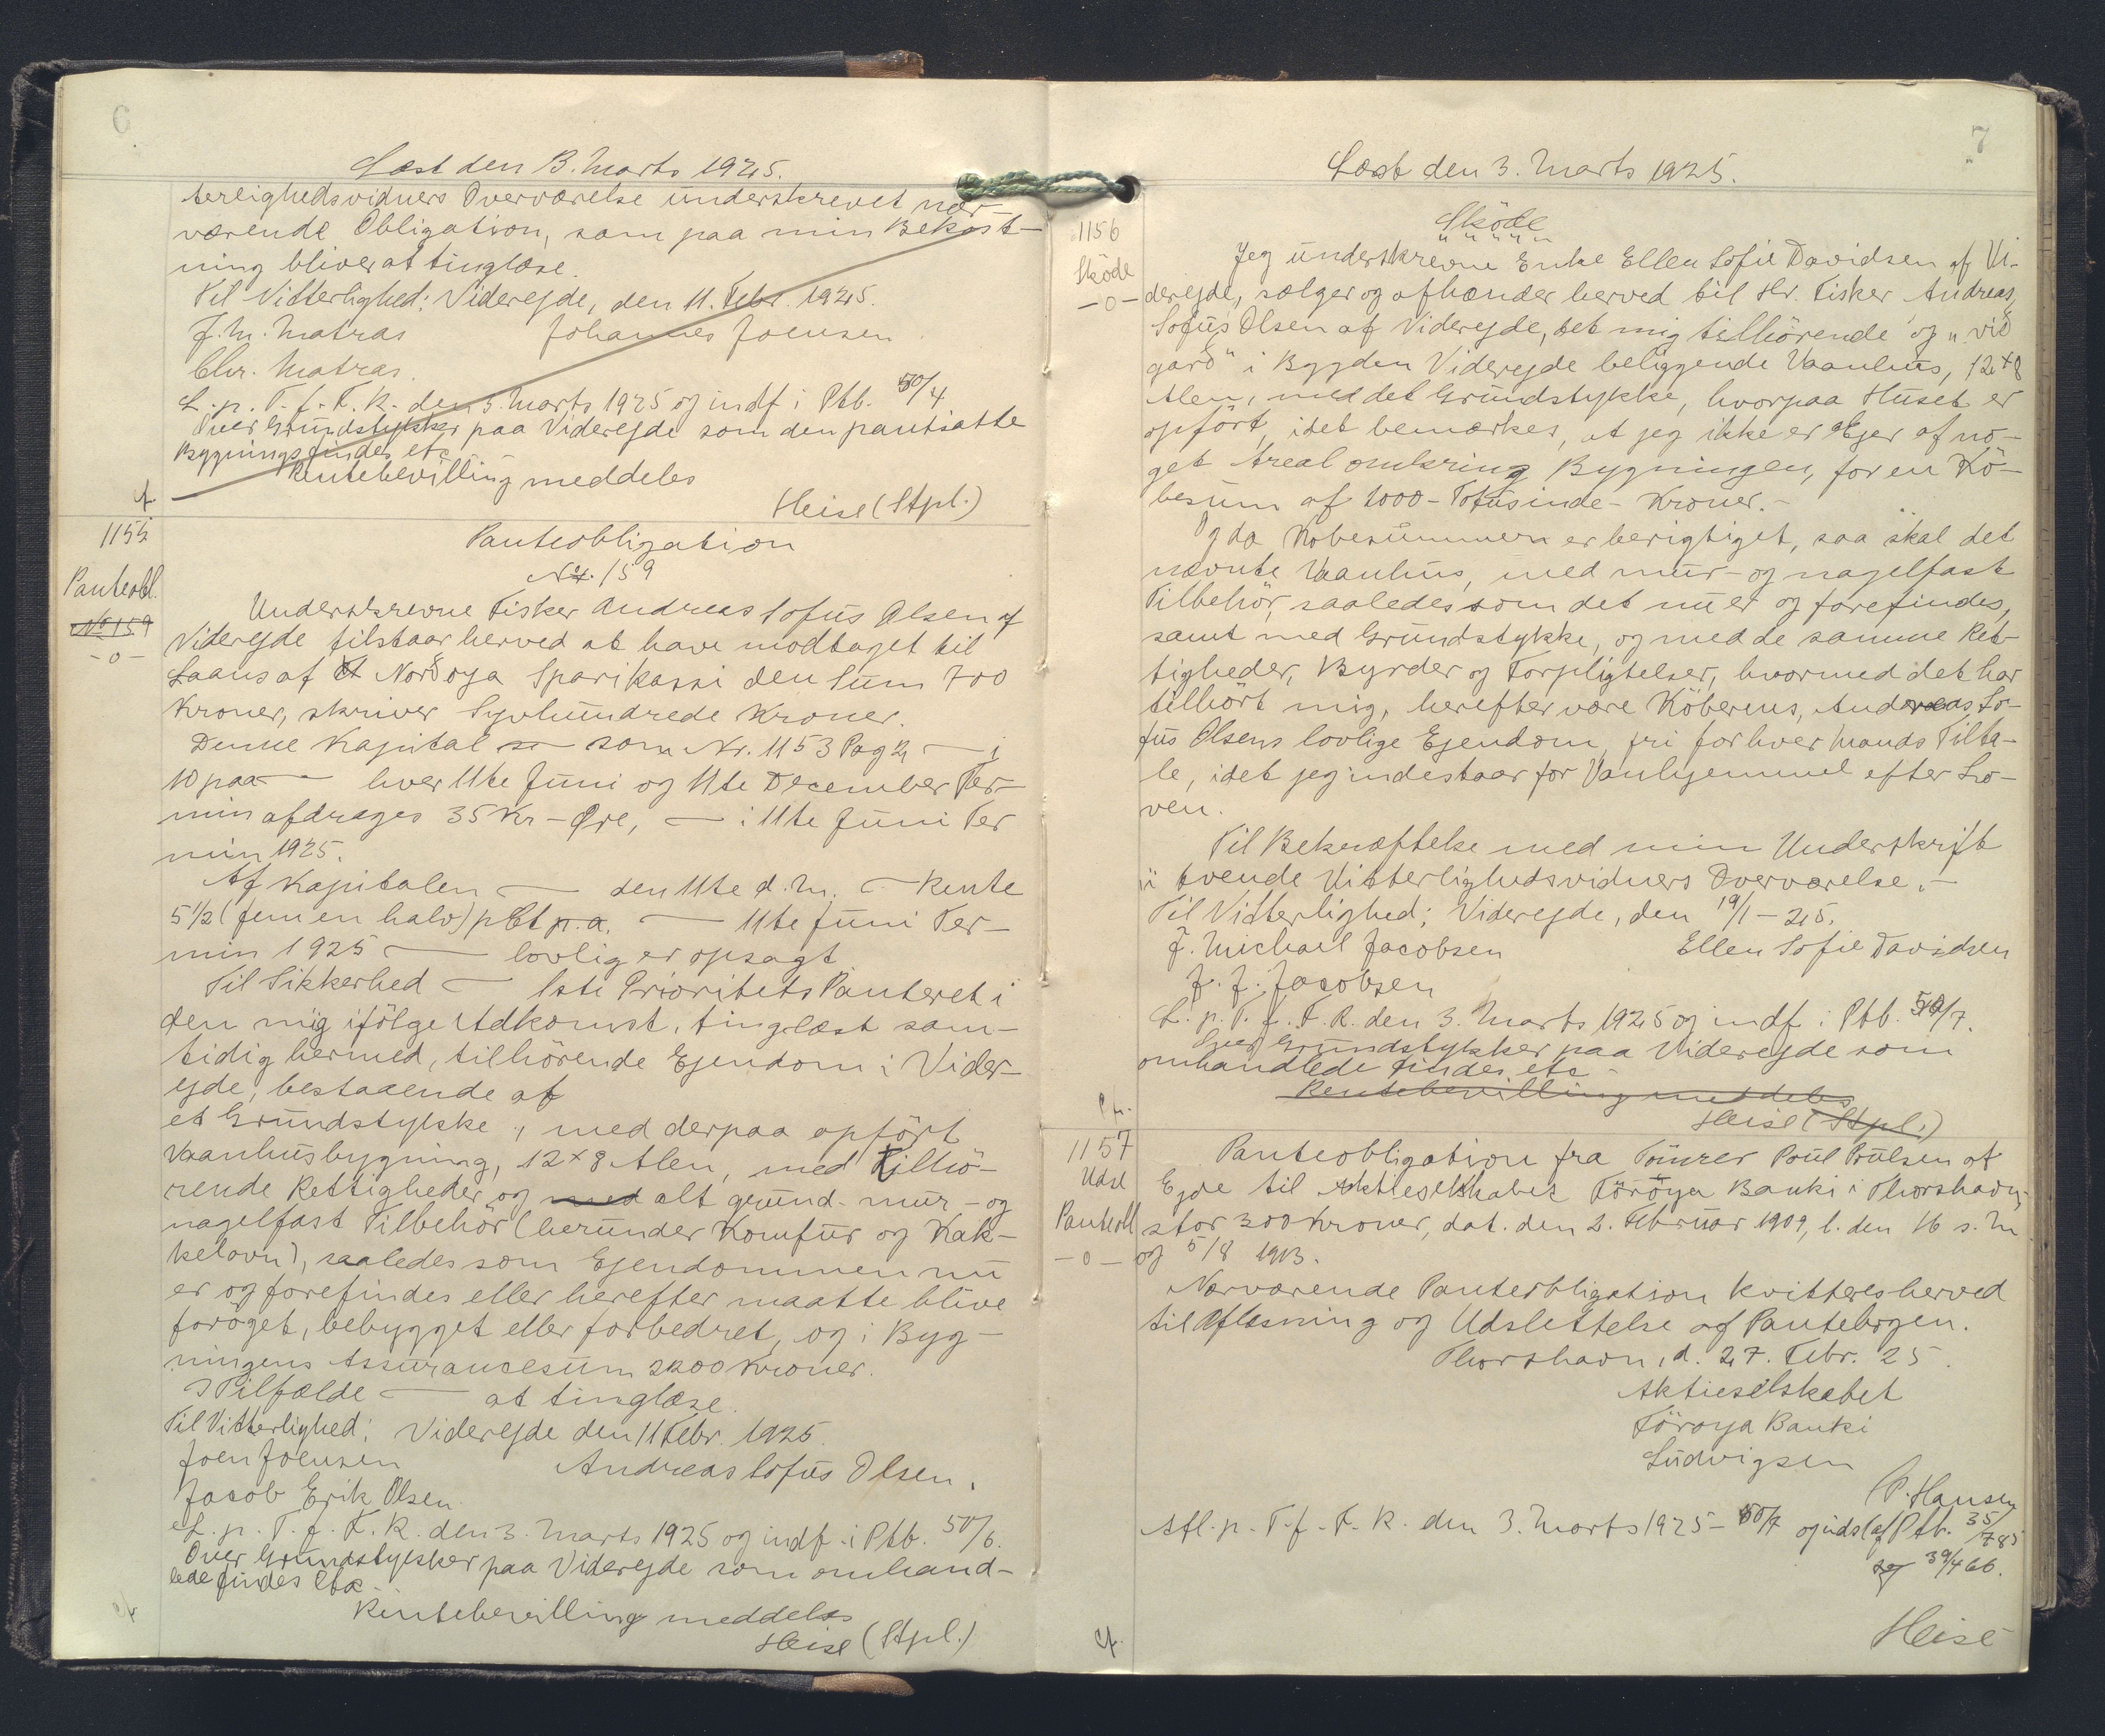 6
Læst den 3. Marts 1925.
terlighedsvidners Overværelse underskrevet nær-
værende Obligation, som paa min Bekost-
ning bliver at tinglæse.
Til Vitterlighed: Viderejde, den 11. Febr. 1925.
J. M. Matras Johannes Joensen
Chr. Matras.
L. p. T. f. F. R. den 3. Marts 1925 og indf i Ptb. 50/4
Over Grundstykker paa Viderejde som den pantsatte
Bygning findes etc
Rentebevilling meddeles
Heise (Stpl.)
cf.
1155
Panteobl.
No 159
-o-
Panteobligation
Nr. 159
Underskrevne Fisker Andreas Sofus Olsen af
Viderejde tilstaar herved at have modtaget til
Laans af Norðoya Sparikassi den Sum 700
Kroner, skriver Syvhundrede Kroner.
Denne Kapital som Nr. 1153 Pag 2 — i
10 paa — hver 11te Juni og 11te December Ter-
min afdrages 35 Kr - Øre, — i 11te Juni Ter
min 1925.
Af Kapitalen — den 11te d. M. — Rente
5 1/2 (fem en halv) pCt p.a. — 11te Juni Ter-
min 1925 — lovlig er opsagt
Til Sikkerhed — 1ste Prioritets Panteret i
den mig ifölge Adkomst, tinglæst sam-
tidig hermed, tilhörende Ejendom i Vider-
ejde, bestaaende af
et Grundstykke, med derpaa opfört
Vaanhusbygning, 12 x 8 Alen, med Tilhö-
rende Rettigheder og med alt grund- mur- og
nagelfast Tilbehör (herunder Komfur og Kak-
kelovn), saaledes som Ejendommen nu
er og forefindes eller herefter maatte blive
foröget, bebygget eller forbedret, og i Byg-
ningens Assurancesum 2200 Kroner.
I Tilfælde — at tinglæse.
Til Vitterlighed: Viderejde den 11 Febr. 1925.
Joen Joensen Andreas Sofus Olsen.
Jacob Erik Olsen
L. p. T. f. F. R. den 3. Marts 1925 og indf. i Ptb. 50/6.
Over Grundstykker paa Viderejde som omhand-
lede findes etc.
Rentebevilling meddeles
Heise (Stpl.)
cf.
7
Læst den 3. Marts 1925.
1156
Sköde
-o-
Sköde
Jeg underskrevne Enke Ellen Sofie Davidsen af Vi-
derejde, sælger og afhænder herved til Hr. Fisker Andreas
Sofus Olsen af Viderejde, det mig tilhörende og "við
garð" i Bygden Viderejde beliggende Vaanhus, 12 x 8
Alen, med det Grundstykke, hvorpaa Huset er
opfört, idet bemærkes, at jeg ikke er Ejer af no-
get Areal omkring Bygningen, for en Kö-
besum af 2000 - Totusinde - Kroner. -
Og da Köbesummen er berigtiget, saa skal det
nævnte Vaanhus, med mur- og nagelfast
Tilbehör, saaledes som det nu er og forefindes,
samt med Grundstykke, og med de samme Ret-
tigheder, Byrder og Forpligtelser, hvormed det har
tilhört mig, herefter være Köberens, Andreas So-
fus Olsens lovlige Ejendom, fri for hver Mands Tilta-
le, idet jeg indestaar for Vanhjemmel efter Lo-
ven.
Til Bekræftelse med min Underskrift
i tvende Vitterlighedsvidners Overværelse. -
Til Vitterlighed: Viderejde, den 19/1 - 25.
J. Michael Jacobsen Ellen Sofie Davidsen
J. J. Jacobsen
L. p. T. f. F. R. den 3. Marts 1925 og indf. i Ptb. 50/7.
Over Grundstykker paa Viderejde som
omhandlede findes etc
Rentebevilling meddeles
Heise (Stpl.)
cf.
1157
Udsl
Panteobl
-o-
Panteobligation fra Tömrer Poul Poulsen af
Ejde til Aktieselskabet Föroya Banki i Thorshavn,
stor 300 Kroner, dat. den 2. Februar 1909, l. den 16 s. M
og 5/8 1913.
Nærværende Panteobligation kvitteres herved
til Aflæsning og Udslettelse af Pantebogen.
Thorshavn, d. 27. Febr. 25.
Aktieselskabet
Föroya Banki
Ludvigsen
P. Hansen
Afl. p. T. f. F. R. den 3. Marts 1925 - 50/7 og udsl af Ptb. 35/785
og 39/466.
Heise
cf.